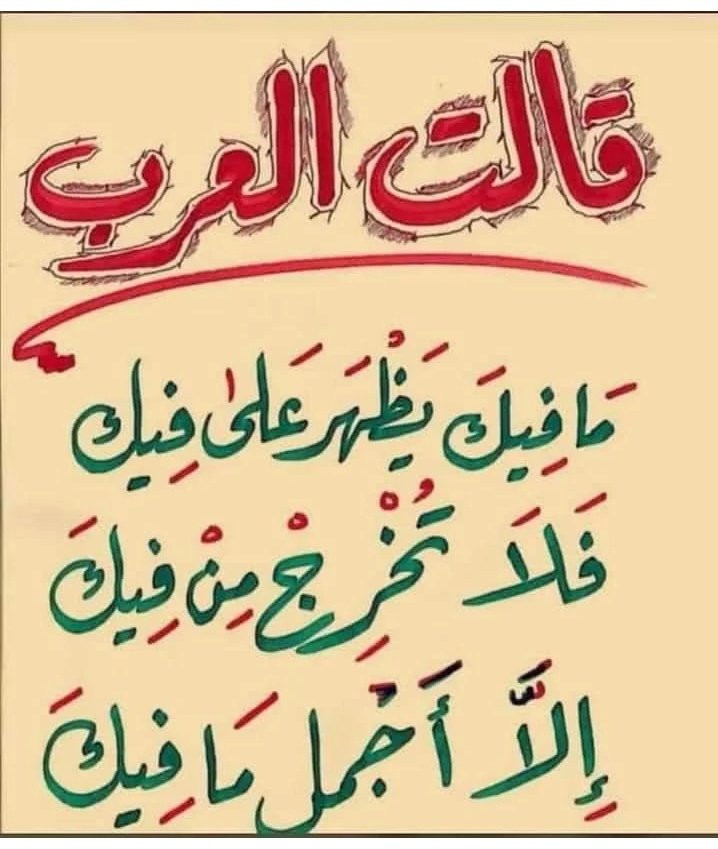 قالت العرب
مَا فِيكَ يَظْهَر عَلىٰ فِيك
فَلَا تُخْرِجْ مِنْ فِيكَ
إِلَّا أَجْمل مَا فِيكَ